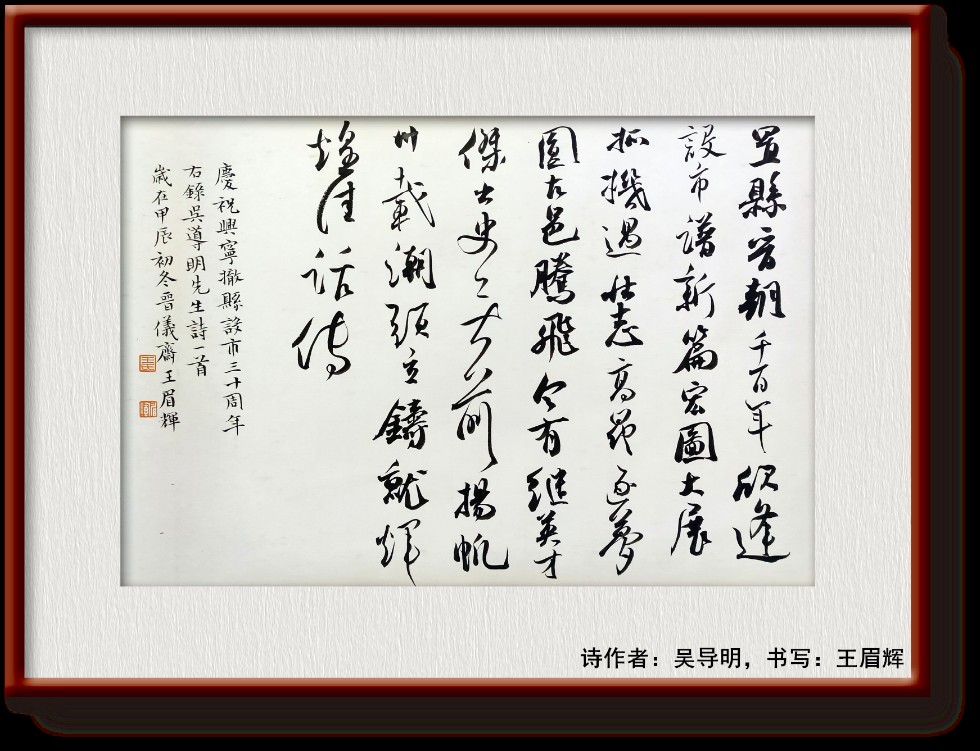 置縣晉朝千百年欣逢
設市譜新篇宏圖大展
抓機遇壯志高昂逐夢
圓古邑騰飛今有繼英才
傑出史前揚帆
卅載潮頭立鑄就輝
煌佳話傳
慶祝興寧撤縣設市三十周年
右錄吳導明先生詩一首
歲在甲辰初冬晉儀齋王眉輝
诗作者：吴导明，书写：王眉辉